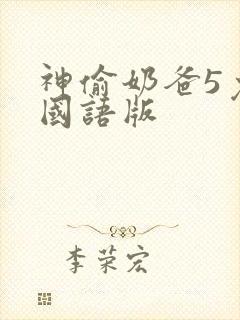 神偷奶爸5
國語版
李荣宏